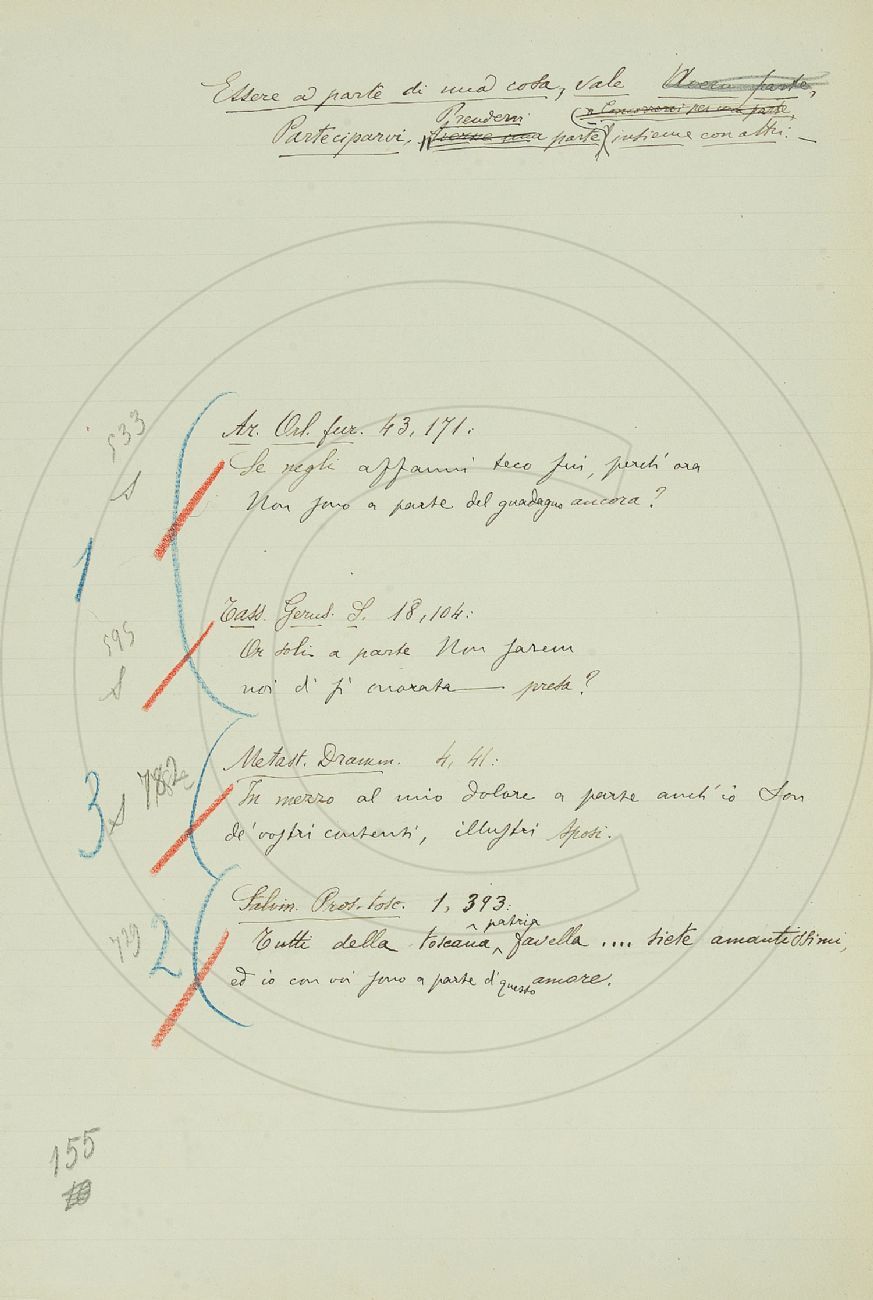 Essere a parte di una cosa, vale Avere parte,
Prendervi o Concorrervi per una parte,
Parteciparvi, Averne una parte insieme con altri: —
533
Ar. Orl. fur. 43, 171:
Se negli affanni teco fui, perch' ora
s
Non sono a parte del guadagno ancora?
1
595
Tass. Gerus. L. 18, 104:
Or soli a parte Non sarem
s
noi di sì onorata — presa?
Metast. Dramm. 4, 41:
3 s 782
In mezzo al mio dolore a parte anch'io Son
de' vostri contenti, illustri sposi.
Salvin. Pros. tosc. 1, 393:
patria
729 2
Tutti della toscana favella .... siete amantissimi,
ed io con voi sono a parte d'questo amore.
155
C